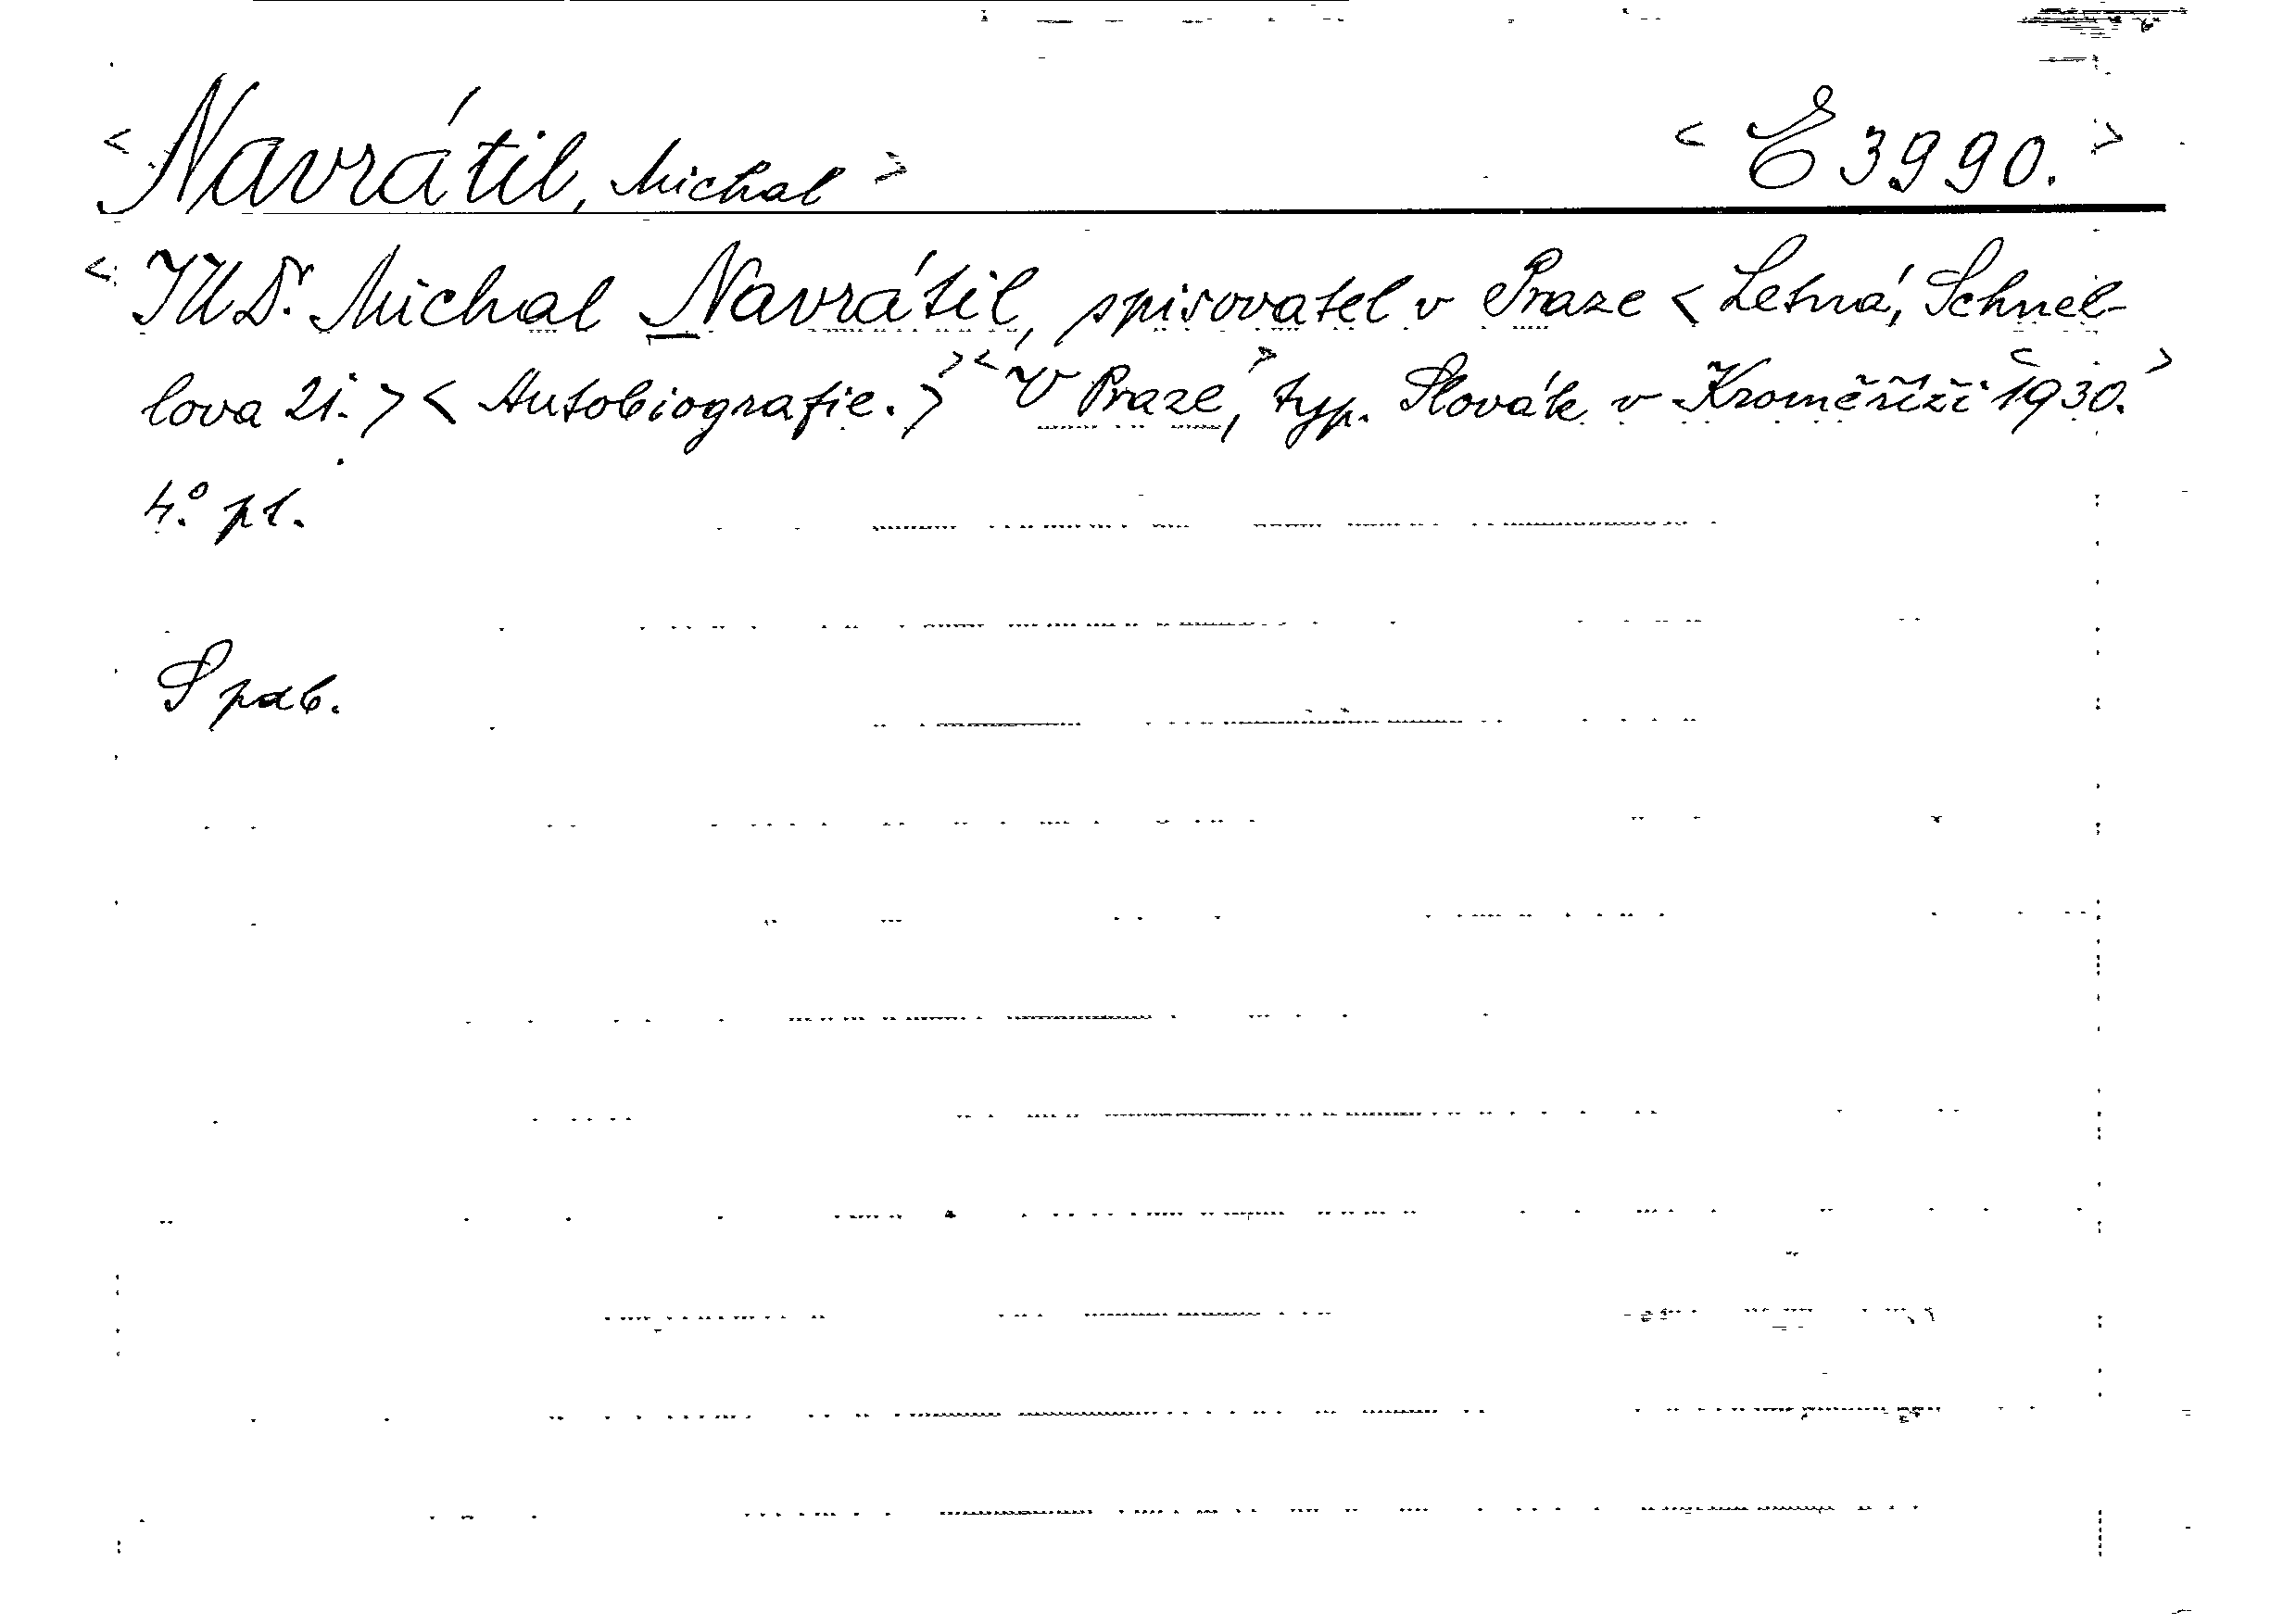 <Navrátil, Michal> <E 3990.>
<JUDr. Michal Navrátil, spisovatel v Praze <Letná, Schnel-
lova 21.> <Autobiografie.>> <V Praze,> typ. Slovák v Kroměříži <1930.>
4.° pl.
S pdb.